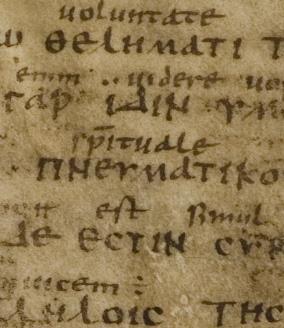 uoluntate
ω θεληματι τ
enim .. uidere uo
γαρ ιδιν
spirituale
πνευματικο
est simul
δε εστιν συν
uicem :
λληλοις της